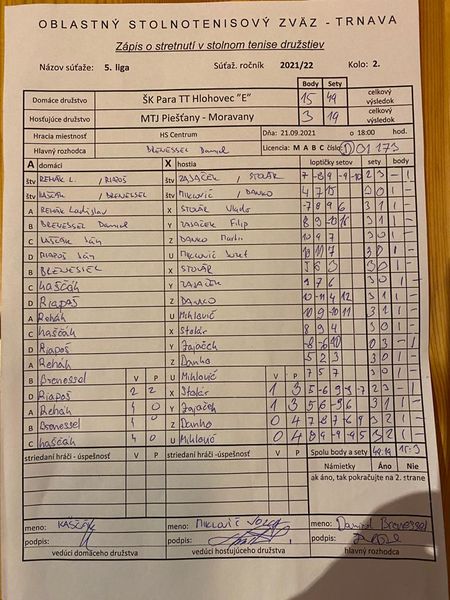 OBLASTNÝ STOLNOTENISOVÝ ZVÄZ - TRNAVA
Zápis o stretnutí v stolnom tenise družstiev
Názov súťaže: 5. liga Súťaž. ročník 2021/22 Kolo: 2.
Body Sety
Domáce družstvo ŠK Para TT Hlohovec "E" 15 49 celkový výsledok
Hosťujúce družstvo MTJ Piešťany - Moravany 3 19 celkový výsledok
Hracia miestnosť HS Centrum Dňa: 21.09.2021 o 18:00 hod.
Hlavný rozhodca BRENESSEL Daniel Licencia: M A B C číslo: D 01173
A domáci X hostia loptičky setov sety body
štv REHÁK L. / RIAPOŠ štv ZAJAČEK / STOLÁR 7 -8 -9 2 3 - 1
štv HAŠČÁK / BRENESSEL štv MIKLOVIČ / DANKO 4 7 3 0 1 -
A REHÁK Ladislav X STOLÁR -7 8 9 6 3 1 1 -
B BRENESSEL Daniel Y ZAJAČEK Filip 8 9 3 1 1 -
C HAŠČÁK Ján Z DANKO Martin 10 9 7 3 0 1 -
D RIAPOŠ Ján U MIKLOVIČ Jozef 3 0 1 -
B BRENESSEL X STOLÁR 3 0 1 -
C HAŠČÁK Y ZAJAČEK 9 7 6 3 1 -
D RIAPOŠ Z DANKO 10 -11 4 12 3 1 1 -
A Rehák U Miklovič 10 -9 10 11 3 1 1 -
C Haščák X Stolár 8 9 4 3 0 1 -
D Riapoš Y Zajaček 0 3 - 1
A Rehák Z Danko 5 2 3 3 0 1 -
B Brenessel V P U Miklovič V P 7 5 7 3 0 1 -
D Riapoš 2 2 X Stolár 1 3 2 3 - 1
A Rehák 4 0 Y Zajaček 1 3 5 6 -9 6 3 1 1 -
B Brenessel 0 Z Danko 0 4 3 1 -
C Haščák 4 0 U Miklovič 0 4 3 2 1 -
striedaní hráči -úspešnosť V P striedaní hráči -úspešnosť V P Spolu body a sety 49:19 15:3
Námietky Áno Nie
ak áno, tak pokračujte na 2. strane
meno: HAŠČÁK meno: MIKLOVIČ meno: Daniel Brenessel
podpis: podpis: podpis:
vedúci domáceho družstva vedúci hosťujúceho družstva hlavný rozhodca